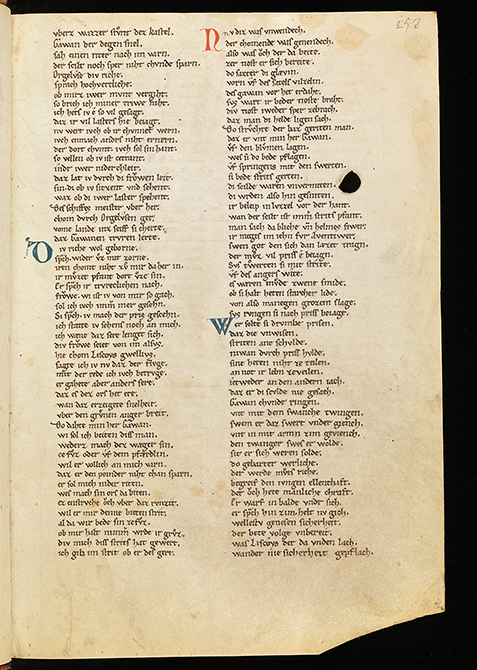 vberz wazzer stvnt der kastel.
Gawan der degen snel.
sah einen riter nach im varn.
der selbe noch sper niht chvnde sparn.
Orgelvse div riche.
sprach hochvertliche.
ob mirz iwer mvnt vergiht.
so brich ich miner triwe niht.
ich hets iv e so vil gesagt.
daz ir vil lasters hie beiagt.
nv wert iwch ob ir chvnnet wern.
iwch enmach anders niht ernern.
der dort chvmt iwch sol sin hant.
so vellen ob iv ist entrant.
inder iwer niderchleit.
daz lat iv dvrch di frowen leit.
sin di ob iv sitzent vnd sehent.
waz ob di iwer laster spehent.
Des schiffes meister vber her.
chom dvrch Orgelvsen ger.
vome lande inz schif si cherte.
daz Gawanen trvren lerte.
Div riche wol geborne.
sprach wider vz mit zorne.
iren chomt niht zv mir da her in.
ir mvzet pfant der vze sin.
Er sprach ir trvreclichen nach.
frowe wi ist iv von mir so gach.
sol ich iwch immer mer gesehen.
Si sprach iv mach der pris geschehn.
ich statte iv sehens noch an mich.
ich wæne daz sere lenget sich.
div frowe schiet von im alsvs.
hie chom Liscoys gwellivs.
sagte ich iv nv daz der flvge.
mit der rede ich iwch betrvge.
er gahete aber anders sere.
daz es daz ors het ere.
wan daz erzeigete snelheit.
vber den grvnen anger breit.
Do dahte min her Gawan.
wi sol ich beiten diss man.
wederz mach daz wæger sin.
ze fvz oder vf dem pfærdelin.
wil er vollich an mich varn.
daz er den poinder niht chan sparn.
er sol mich nider riten.
wes mach sin ors da biten.
ez enstrvche och vber daz rvnzit.
wil er mir denne bieten strit.
al da wir bede sin ze fvz.
ob mir halt nimmer wrde ir grvz.
div mich diss strits hat gewert.
ich gib im strit ob er des gert.
Nv diz was vnwendech.
der chomende was genendech.
also was och der da beite.
zer tiost er sich bereite.
do satzter di glævin.
vorn vf des satels vilzelin.
des Gawan vor het erdaht.
svs wart ir beder tioste braht.
div tiost weder sper zebrach.
daz man di helde ligen sach.
Do strvchte der baz geriten man.
daz er vnt min her Gawan.
vf den blvmen lagen.
wes si do bede pflagen.
vf springens mit den swerten.
si bede strits gerten.
di schilde waren vnvermiten.
di wrden also hin gesniten.
ir beleip in lvtzel vor der hant.
wan der schilt ist immer strits pfant.
man sach da bliche vnd helmes fiwer.
ir mvgts im iehen fvr aventiwer.
swen got den sich dan læzet tragn.
der mvz vil priss e beiagn.
Svs tverten si mit strite.
vf des angers wite.
es wæren mvde zwene smide.
ob si halt heten starcher lide.
von also manegem grozen slage.
svs rvngen si nach priss beiage.
Wer solte si drvmbe prisen.
daz di vnwisen.
striten ane schvlde.
niwan dvrch priss hvlde.
sine heten niht ze teilen.
an not ir lebn zeveilen.
ietweder an den andern iach.
daz er di schvlde nie gesach.
Gawan chvnde ringen.
vnt mit dem swanche twingen.
swem er daz swert vnder giench.
vnt in mit armn zim geviench.
den twanger swes er wolde.
sit er sich weren solde.
do gebarter werliche.
der werde mvts riche.
begreif den ivngen ellenthaft.
der och hete manliche chraft.
Er warf in balde vnder sich.
er sprach hin zim helt nv gich.
wellestv genesen sicherheit.
der bete volge vnbereit.
was Liscoys der da vnden lach.
wander nie sicherheit gepflach.